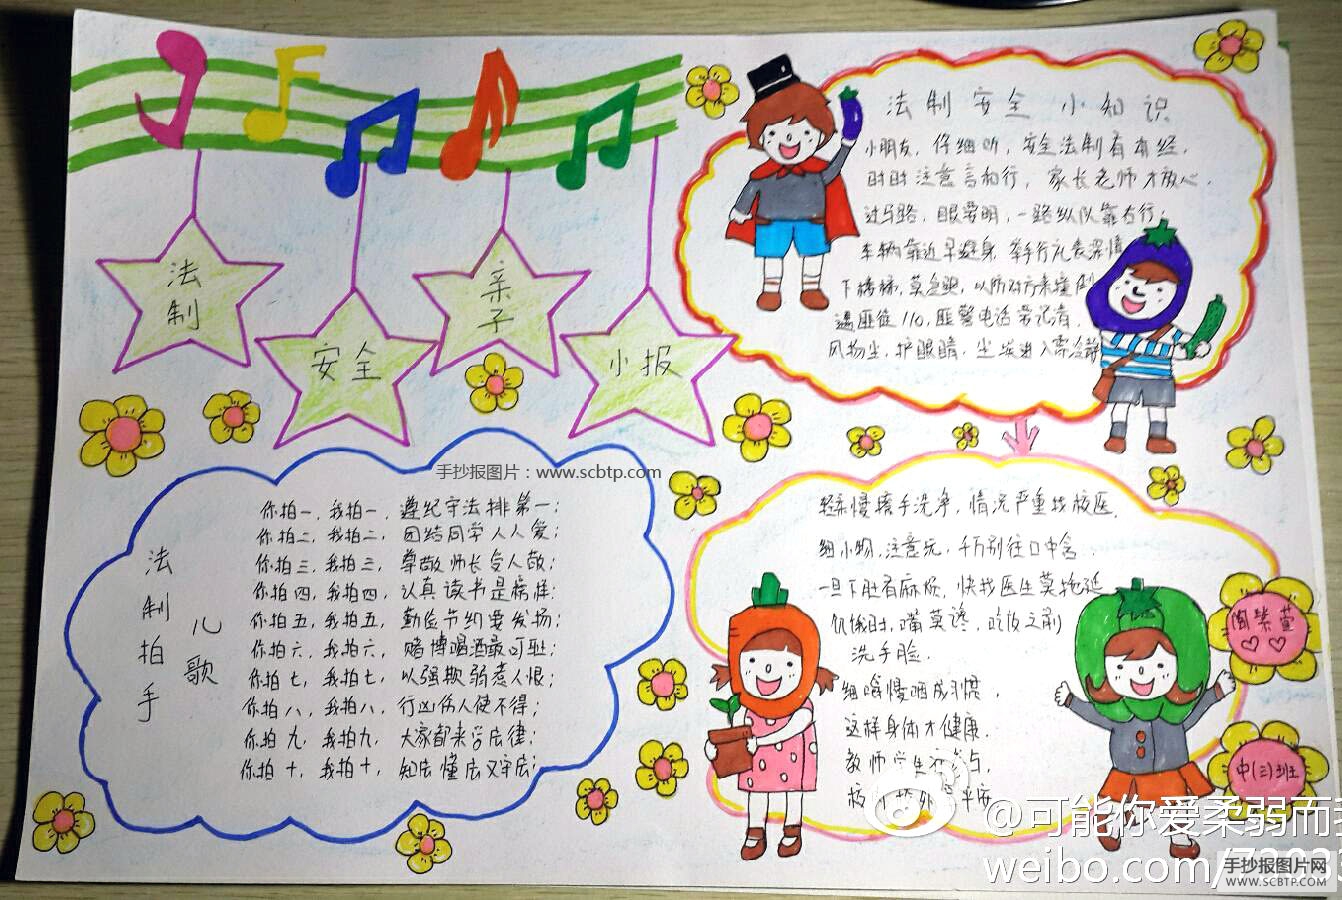 法制
安全
亲子
小报
法制安全小知识
小朋友，仔细听，安全法制有本经.
时时注意言和行，家长老师才放心.
过马路，眼要明，一路纵队靠右行;
车辆靠近早避身，举手行礼表深情
下楼梯，莫急躁，以防对方来撞倒
遇匪徒110，匪警电话常记清，
风物尘，护眼睛，尘埃进入
手抄报图片：www.scbtp.com
法制拍手
儿歌
你拍一，我拍一，遵纪守法排第一;
你拍二，我拍二，团结同学人人爱;
你拍三，我拍三，尊敬师长令人敬;
你拍四，我拍四，认真读书是榜样;
你拍五，我拍五，勤俭节约要发扬;
你拍六，我拍六，赌博喝酒最可耻;
你拍七，我拍七，以强欺弱惹人恨;
你拍八，我拍八，行凶伤人使不得;
你拍九，我拍九，大家都来学法律;
你拍十，我拍十，知法懂法又守法;
轻柔慢擦手洗净，情况严重找校医.
细小物，注意玩，千万别往口中含
一旦下肚有麻烦，快找医生莫拖延
饥饿时，嘴莫馋，吃饭之前
洗手脸.
细嚼慢咽成习惯，
这样身体才健康.
教师学生
平安
陶紫萱
中(三)班
@可能你爱柔弱而
weibo.com/
手抄报图片网
WWW.SCBTP.COM